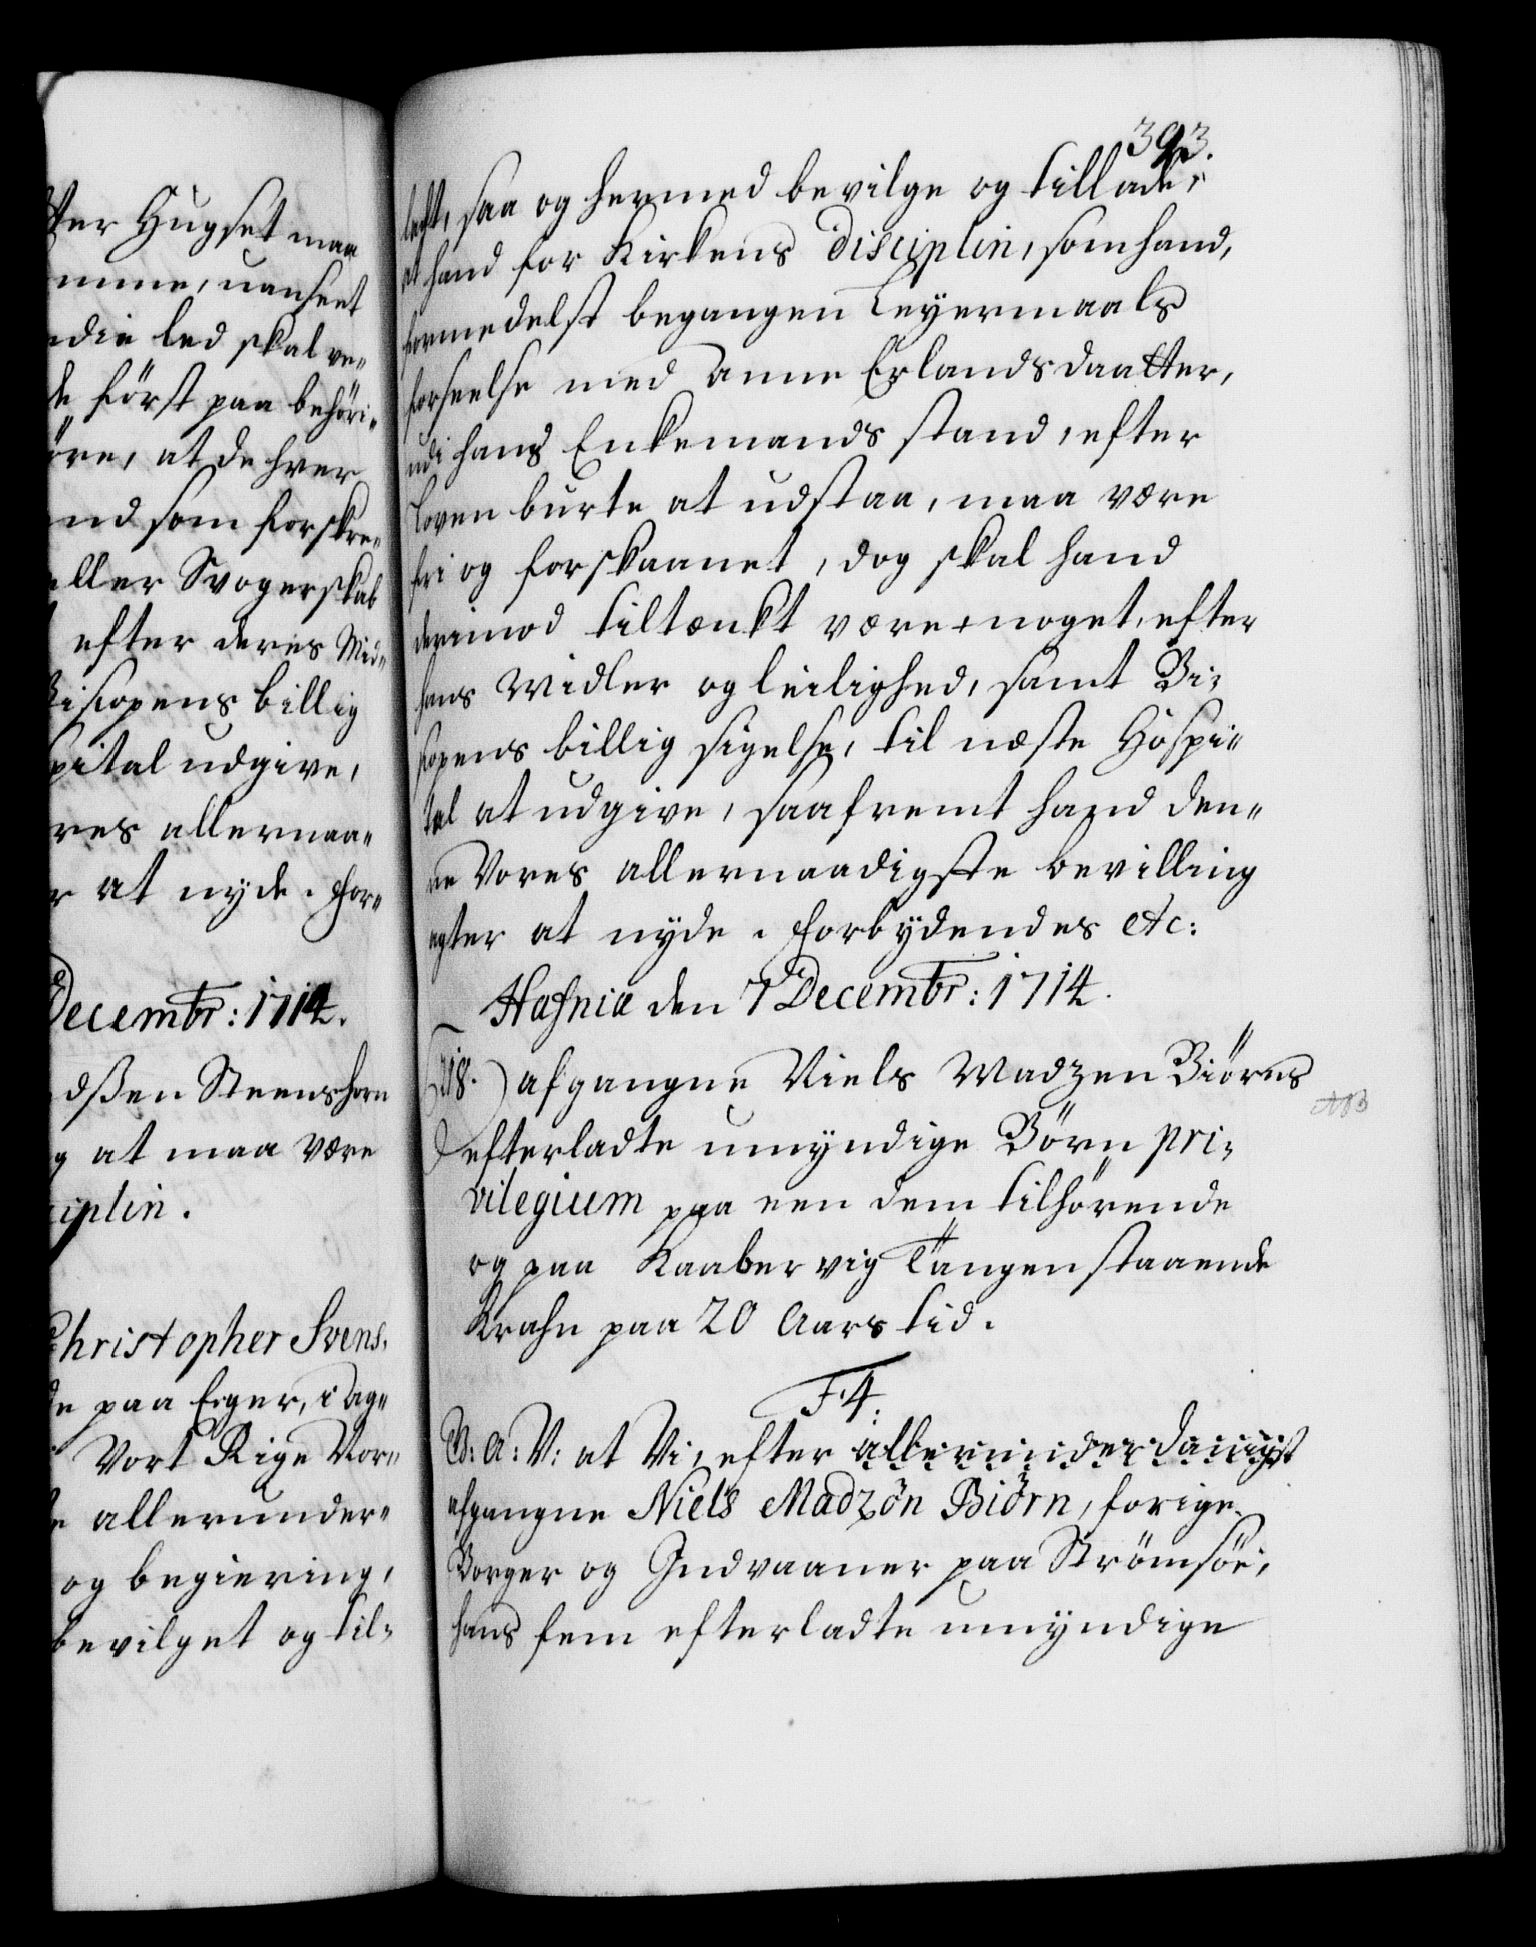 ster Hugset maa
mme, uanseet
die led skal ve-
de först paa behöri-
öre, at de hver
nd som forskre-
eller Svogerskab
efter deres Mid-
Biscopens billig
pital udgive,
res allernaa-
r at nyde. For-
Decembr: 1714.
dßen Steenshorn
g at maa være
ciplin.
Christopher Svens.
de paa Eger, i ag-
Vort Rige Nor-
te allerunder-
og begiering,
bevilget og til-
393.
ladt, saa og hermed bevilge og tillade,
at hand for Kirkens Disciplin, som hand,
formedelst begangen Leyermaals
forseelse med Anne Erlandsdaatter,
udi hans Enkemands stand, efter
Loven burte at udstaa, maa være
fri og forskaanet, dog skal hand
derimod tiltænkt være noget, efter
hans Midler og leilighed, samt Bi-
scopens billig sigelse, til næste Hospi-
tal at udgive, saafremt hand den-
ne Vores allernaadigste bevilling
agter at nyde. Forbydendes etc:
Hafniæ den 7 Decembr: 1714.
218.) afgangne Niels Madzen Biörns
efterladte umyndige Börn pri-
vilegium paa een dem tilhörende
og paa Kaabervig Tangen staaende
Krahn paa 20 Aars tid.
F. 4.
G: A: V: at Vi, efter allerunderdanigst
afgangne Niels Madzön Biörn, forige
Borger og Indvaaner paa Strömsöe,
hans fem efterladte umyndige